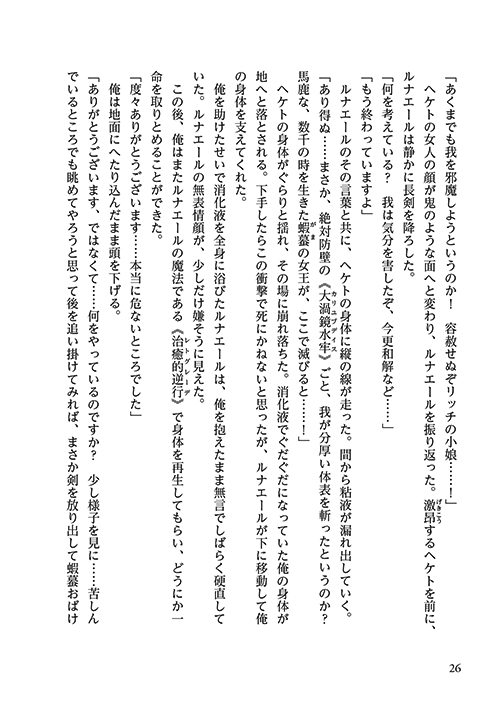 「あくまでも我を邪魔しようというのか！　容赦せぬぞリッチの小娘……！」
　ヘケトの女人の顔が鬼のような面へと変わり、ルナエールを振り返った。激昂するヘケトを前に、
ルナエールは静かに長剣を降ろした。
「何を考えている？　我は気分を害したぞ、今更和解など……」
「もう終わっていますよ」
　ルナエールのその言葉と共に、ヘケトの身体に縦の線が走った。間から粘液が漏れ出していく。
「あり得ぬ……まさか、絶対防壁の《大渦鏡水牢》ごと、我が分厚い体表を斬ったというのか？
馬鹿な、数千の時を生きた蝦蟇の女王が、ここで滅びると……！」
　ヘケトの身体がぐらりと揺れ、その場に崩れ落ちた。消化液でぐだぐだになっていた俺の身体が
地へと落とされる。下手したらこの衝撃で死にかねないと思ったが、ルナエールが下に移動して俺
の身体を支えてくれた。
　俺を助けたせいで消化液を全身に浴びたルナエールは、俺を抱えたまま無言でしばらく硬直して
いた。ルナエールの無表情顔が、少しだけ嫌そうに見えた。
　この後、俺はまたルナエールの魔法である《治癒的逆行》で身体を再生してもらい、どうにか一
命を取りとめることができた。
「度々ありがとうございます……本当に危ないところでした」
　俺は地面にへたり込んだまま頭を下げる。
「ありがとうございます、ではなくて……何をやっているのですか？　少し様子を見に……苦しん
でいるところでも眺めてやろうと思って後を追い掛けてみれば、まさか剣を放り出して蝦蟇おばけ
26